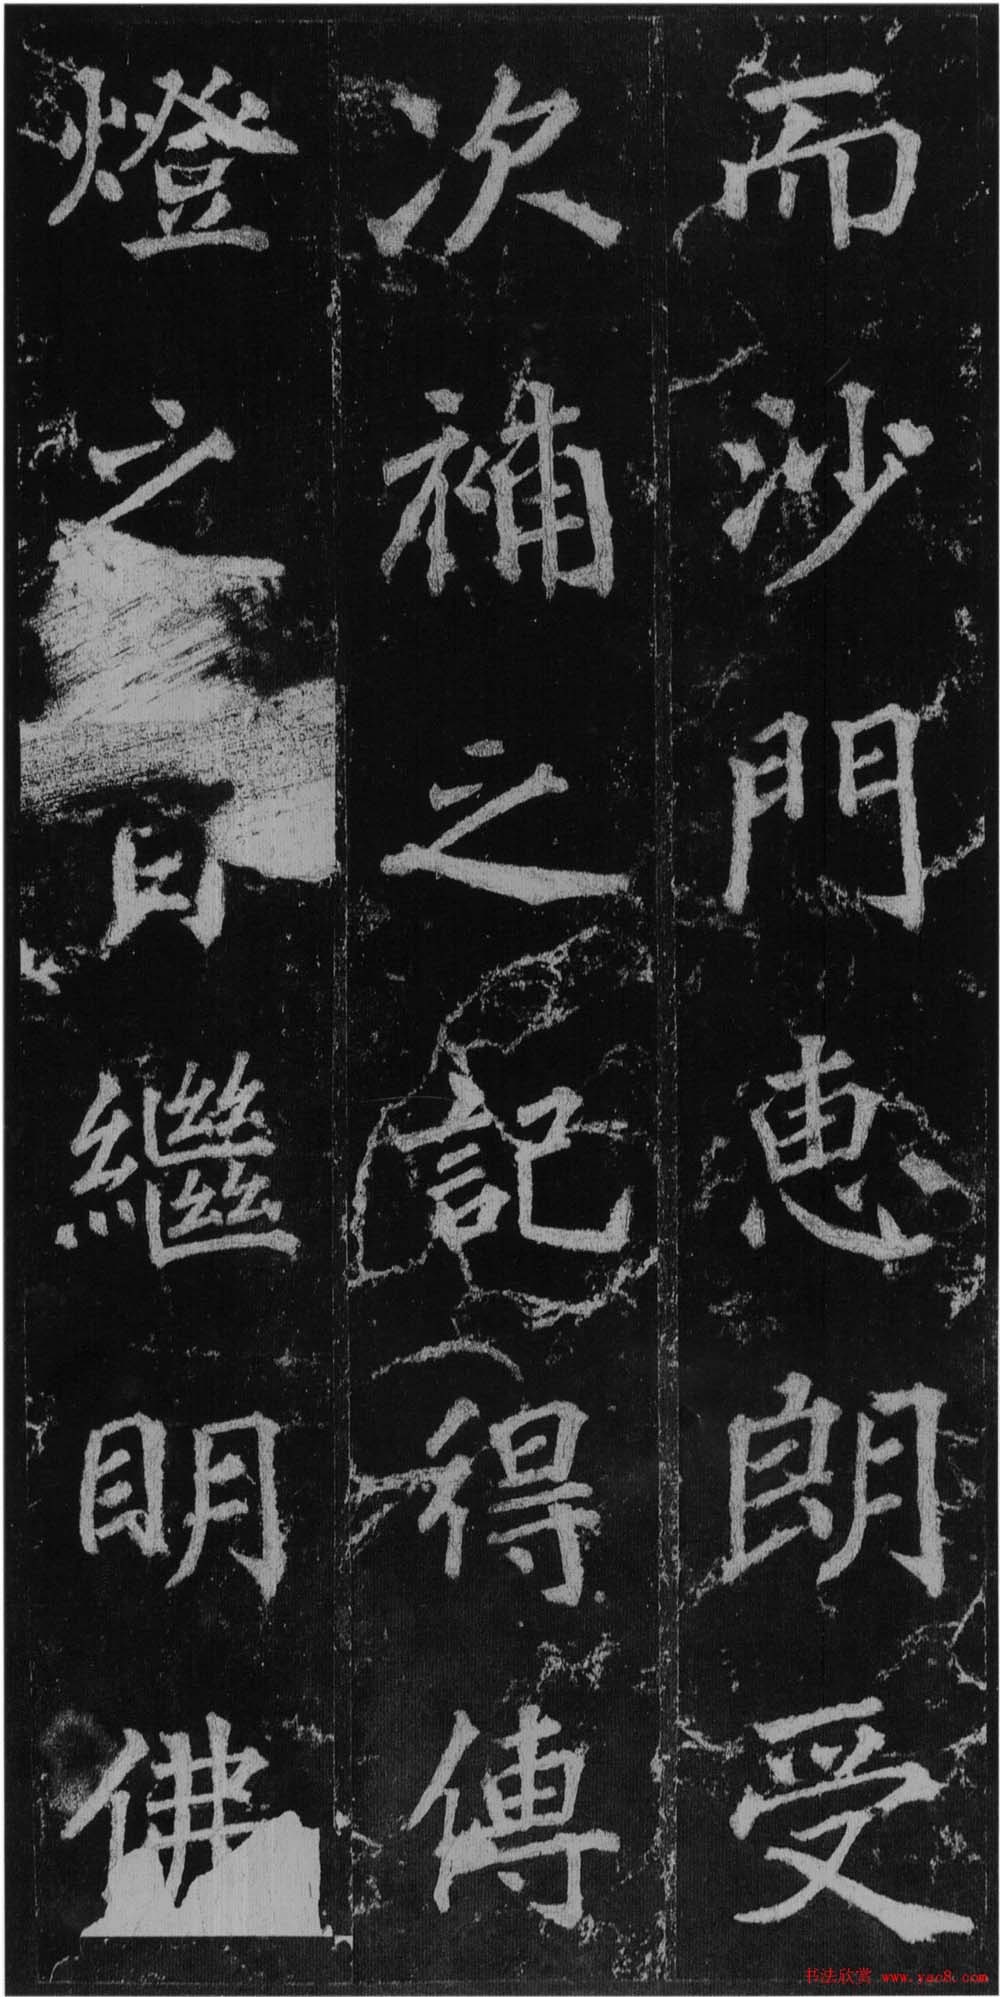 而沙門惠朗受
次補之記得傳
燈之目繼明佛
书法欣赏 www.yac8.com